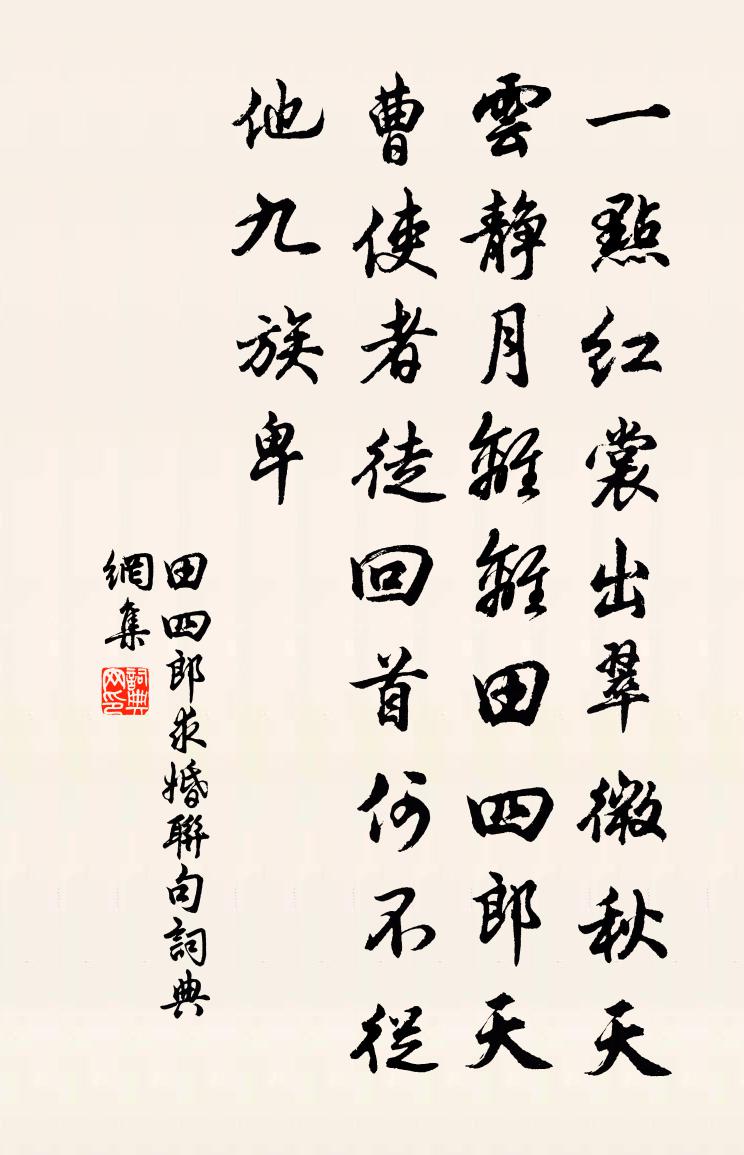 一點紅裳出翠微秋天
雲靜月離離田四郎天
曹使者徒回首何不從
他九族卑
田四郎求婚聯句詞典
網集
詞典
网印